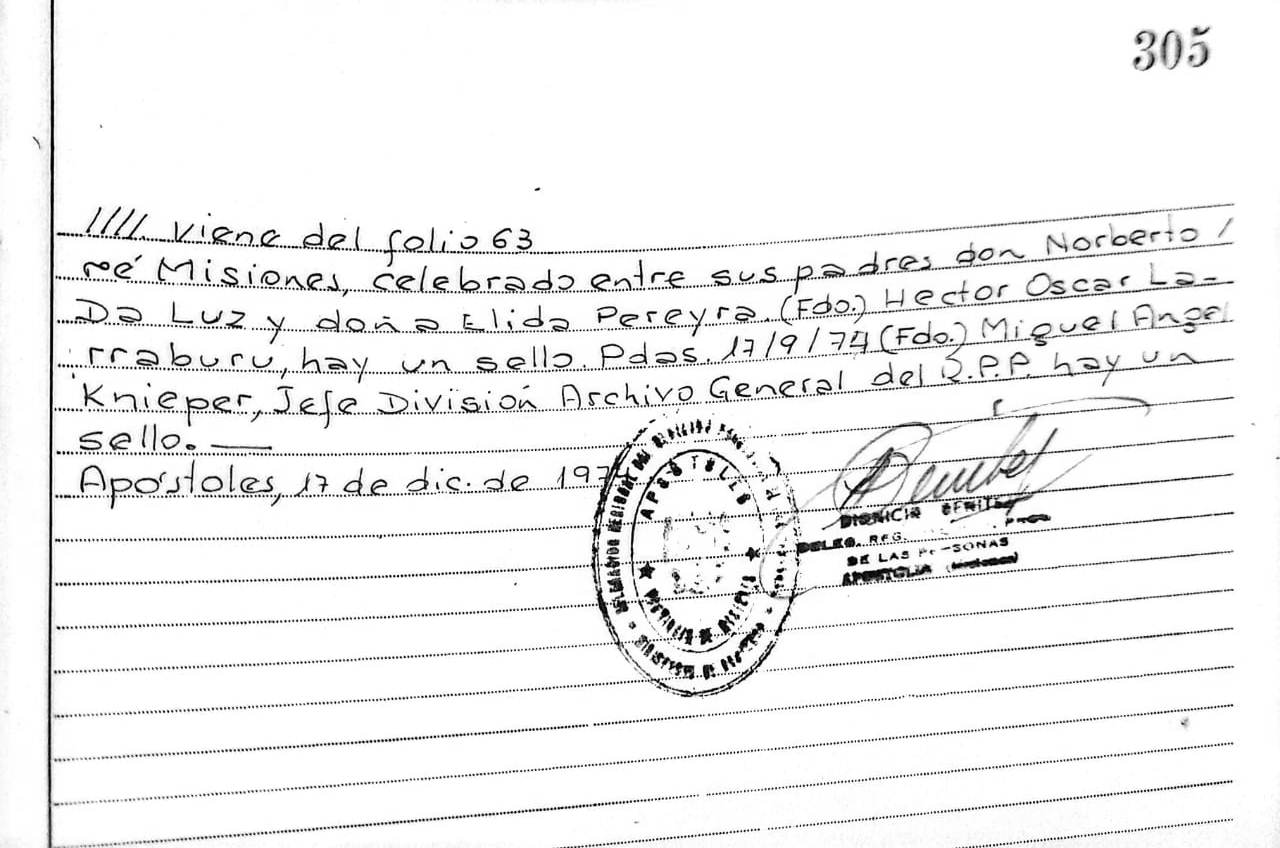 305
//// viene del folio 63
ré Misiones, celebrado entre sus padres don Norberto /
Da Luz y doña Elida Pereyra. (Fdo.) Hector Oscar La-
rraburu, hay un sello. Pdas. 17/9/74 (Fdo.) Miguel Angel
Knieper, Jefe División Archivo General del R.P.P. hay un
sello. —
Apóstoles, 17 de dic. de 197
APOSTOLES
DELEG. REG.
DE LAS PERSONAS